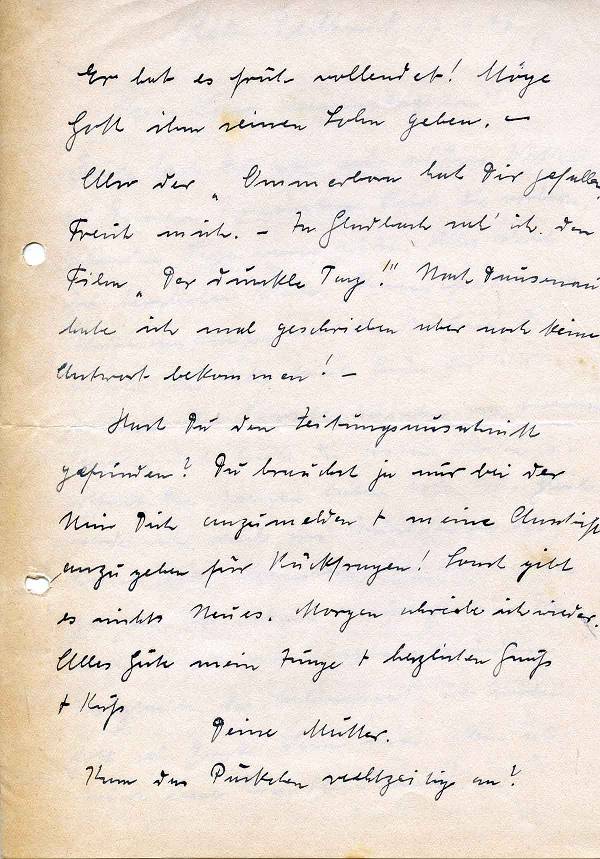 Er hat es früh vollendet! Möge
Gott ihm seinen Lohn geben. –
Aber der „Ommerborn hat Dir gefallen,
Freut mich. – In Gladbach sah ich den
Film „Der dunkle Tag!" Nach Dausenau
habe ich mal geschrieben aber noch keine
Antwort bekommen! –
Hast Du den Zeitungsausschnitt
gefunden? Du brauchst ja nur bei der
Dich anzumelden + meine Anschrift
anzugeben für Rückfragen! Sonst gibt
es nichts Neues. Morgen schreibe ich wieder.
Alles Gute mein Junge + herzlichen Gruß
+ Kuß
Deine Mutter.
Kam das Päckchen rechtzeitig an?